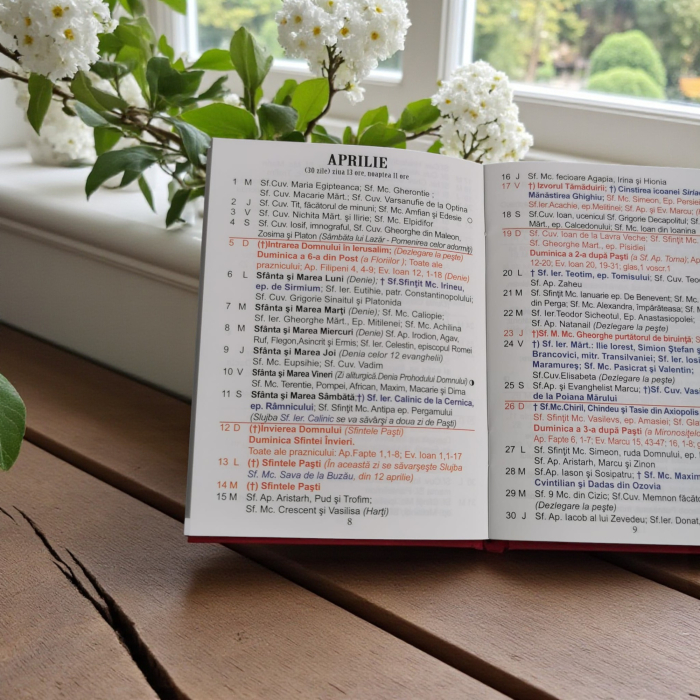 APRILIE
(30 zile) ziua 13 ore, noaptea 11 ore
1 M Sf.Cuv. Maria Egipteanca; Sf. Mc. Gherontie;
Sf. Cuv. Macarie Mărt.; Sf. Cuv. Varsanufie de la Optina
2 J Sf. Cuv. Tit, făcătorul de minuni; Sf. Mc. Amfian și Edesie
3 V Sf. Cuv. Nichita Mărt. și Ilirie; Sf. Mc. Elpidifor
4 S Sf. Cuv. Iosif, imnograful, Sf. Cuv. Gheorghe din Maleon,
Zosima și Platon (Sâmbăta lui Lazăr - Pomenirea celor adormiți)
5 D (†)Intrarea Domnului în Ierusalim; (Dezlegare la pește)
Duminica a 6-a din Post (a Floriilor); Toate ale
praznicului; Ap. Filipeni 4, 4-9; Ev. Ioan 12, 1-18 (Denie)
6 L Sfânta și Marea Luni (Denie); † Sf.Sfințit Mc. Irineu,
ep. de Sirmium; Sf. Ier. Eutihie, patr. Constantinopolului;
Sf. Cuv. Grigorie Sinaitul și Platonida
7 M Sfânta și Marea Marți (Denie); Sf. Mc. Caliopie;
Sf. Ier. Gheorghe Mărt., Ep. Mitilenei; Sf. Mc. Achilina
8 M Sfânta și Marea Miercuri (Denie) Sf. Ap. Irodion, Agav,
Ruf, Flegon,Asincrit și Ermis; Sf. Ier. Celestin, episcopul Romei
9 J Sfânta și Marea Joi (Denia celor 12 evanghelii)
Sf. Mc. Eupsihie; Sf. Cuv. Vadim
10 V Sfânta și Marea Vineri (Zi aliturgică.Denia Prohodului Domnului)
Sf. Mc. Terentie, Pompei, African, Maxim, Macarie și Dima
11 S Sfânta și Marea Sâmbătă;†) Sf. Ier. Calinic de la Cernica,
ep. Râmnicului; Sf. Sfințit Mc. Antipa ep. Pergamului
(Slujba Sf. Ier. Calinic se va săvârși a doua zi de Paști)
12 D (†)Învierea Domnului (Sfintele Paști)
Duminica Sfintei Învieri.
Toate ale praznicului: Ap.Fapte 1,1-8; Ev. Ioan 1,1-17
13 L (†) Sfintele Paști (În această zi se săvarșește Slujba
Sf. Mc. Sava de la Buzău, din 12 aprilie)
14 M (†) Sfintele Paști
15 M Sf. Ap. Aristarh, Pud și Trofim;
Sf. Mc. Crescent și Vasilisa (Harți)
8
16 J Sf. Mc. fecioare Agapia, Irina și Hionia
17 V †) Izvorul Tămăduirii; †) Cinstirea icoanei
Mănăstirea Ghighiu; Sf. Mc. Simeon, Ep. Persiei
Sf.Ier.Acachie, ep.Melitinei; Sf. Ap. și Ev. Marcu;
18 S Sf.Cuv. Ioan, ucenicul Sf. Grigorie Decapolitul; Sf.
Mărt., ep. Calcedonului; Sf. Mc. Ioan din Ioanina
19 D Sf. Cuv. Ioan de la Lavra Veche; Sf. Sfințit Mc.
Sf. Gheorghe Mart., ep. Pisidiei
Duminica a 2-a după Paști (a Sf. Ap. Toma); Ap.
12-20; Ev. Ioan 20, 19-31, glas,1 voscr.1
20 L † Sf. Ier. Teotim, ep. Tomisului; Sf. Cuv.
Ap. Zaheu
21 M Sf. Sfințit Mc. Ianuarie ep. De Benevent; Sf. Mc.
din Perga; Sf. Mc. Alexandra, împărăteasa; Sf. M
22 M Sf. Ier.Teodor Sicheotul, Ep. Anastasiopolei;
Sf. Ap. Natanail (Dezlegare la pește)
23 J †)Sf. M. Mc. Gheorghe purtătorul de biruință,
24 V †) Sf. Ier. Mărt.: Ilie Iorest, Simion Ștefan
Brancovici, mitr. Transilvaniei; Sf. Ier.
Maramureș; Sf. Mc. Pasicrat și Valentin;
Sf.Cuv.Elisabeta (Dezlegare la pește)
25 S Sf.Ap. și Evanghelist Marcu; †)Sf. Cuv.
de la Poiana Mărului
26 D † Sf.Mc.Chiril, Chindeu și Tasie din Axiopolis
Sf. Sfințit Mc. Vasilevs, ep. Amasiei; Sf.
Duminica a 3-a după Paști (a Mironosițelor
Ap. Fapte 6, 1-7; Ev. Marcu 15, 43-47; 16, 1-8;
27 L Sf. Sfințit Mc. Simeon, ruda Domnului, ep.
Sf. Ap. Aristarh, Marcu și Zinon
28 M Sf. Ap. Iason și Sosipatru; † Sf. Mc. Maxim
Cvintilian și Dadas din Ozovia
29 M Sf. 9 Mc. din Cizic; Sf.Cuv. Memnon
(Dezlegare la pește)
30 J Sf. Ap. Iacob al lui Zevedeu; Sf.Ier.
9